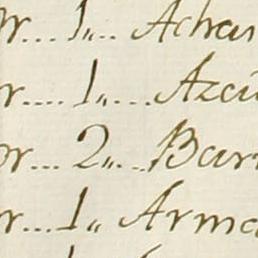 r... 1„.. Achar
r.... 1„....Azcu
or... 2„...Barr
r...1„ Arma